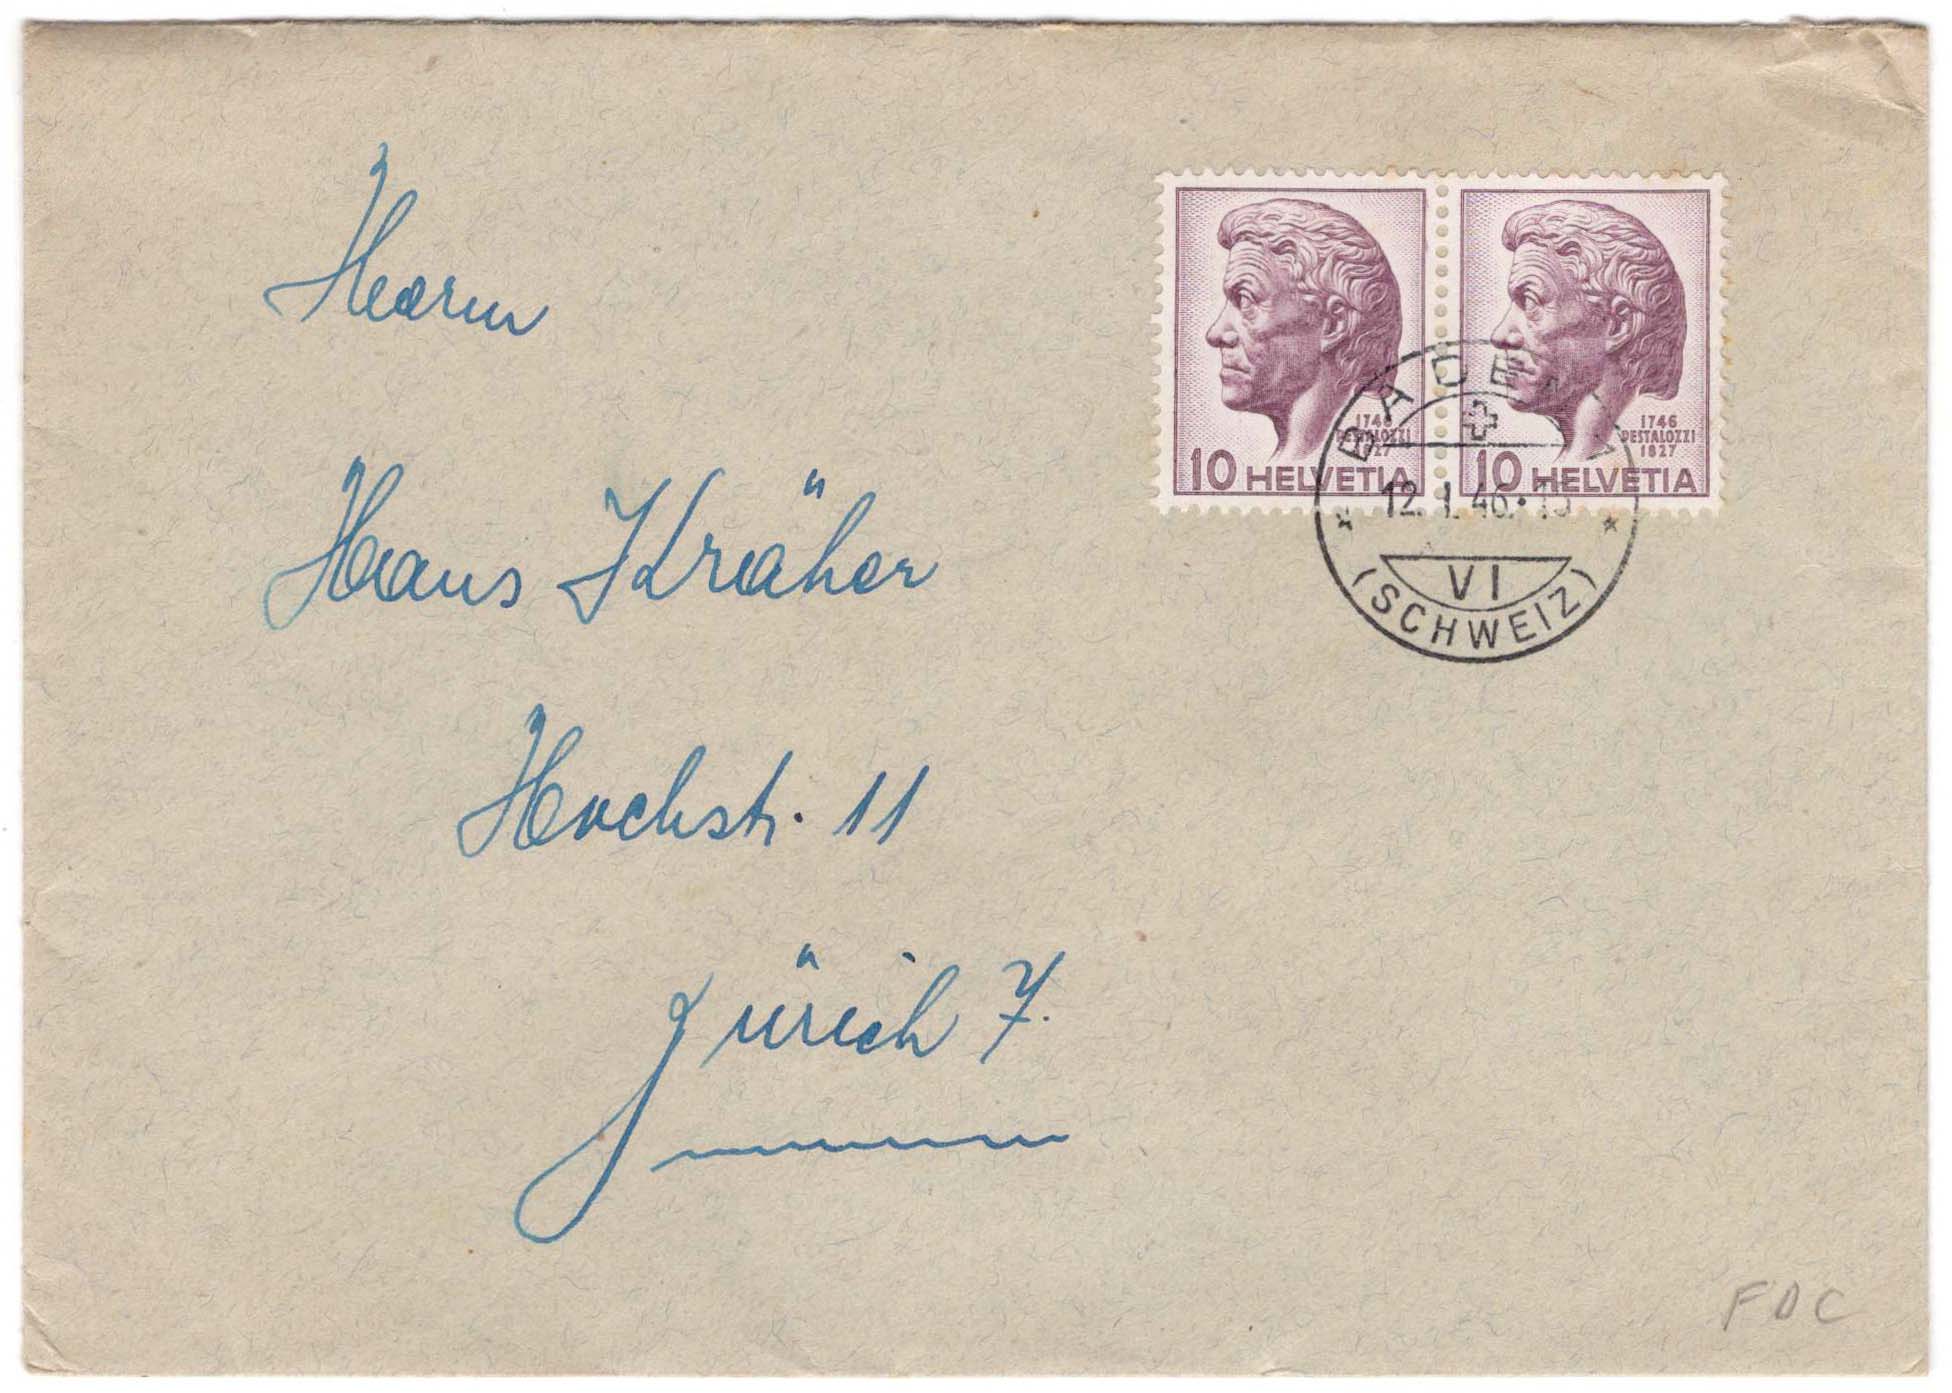 Herrn
Hans Kräher
Hochstr. 11
Zürich 7.
1746
PESTALOZZI
1827
10 HELVETIA
1746
PESTALOZZI
1827
10 HELVETIA
BADEN
12. I. 46.
VI
(SCHWEIZ)
FDC